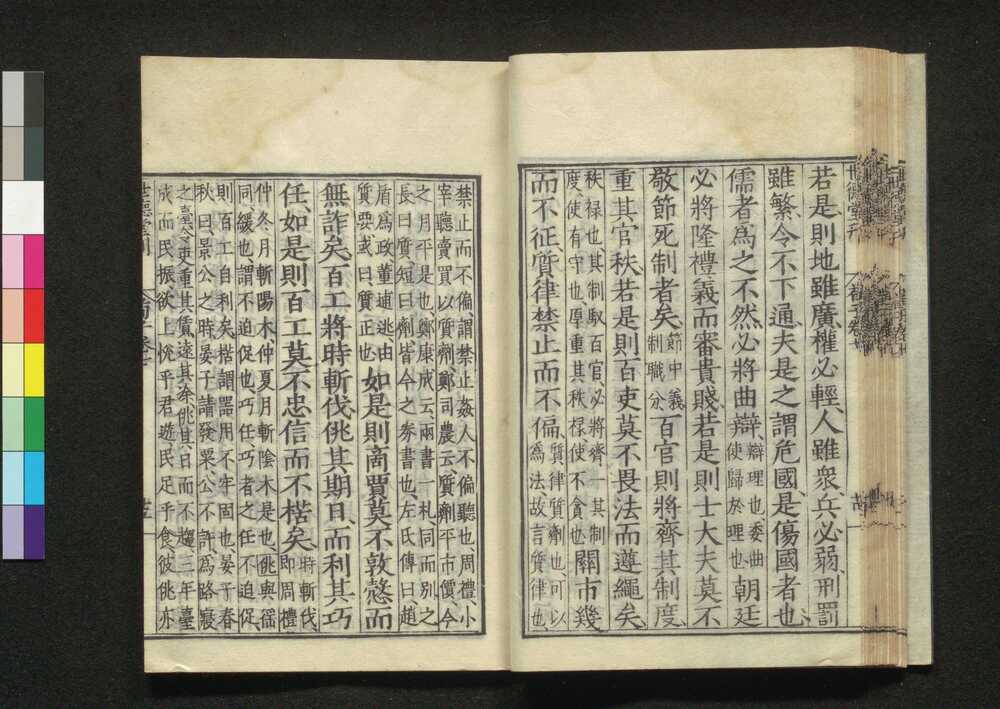 若是、則地雖廣權必輕、人雖衆兵必弱、刑罰
雖繁令不下通、夫是之謂危國、是傷國者也、
儒者爲之不然、必將曲辯、
辯理也委曲
使歸於理也
朝廷
必將隆禮義而審貴賤、若是則士大夫莫不
敬節死制者矣、
節中義
制職分
百官則將齊其制度、
重其官秩、若是則百吏莫不畏法而遵繩矣、
秩禄也、其制馭百官、必將齊一其制
度、使有守也、厚重其秩禄、使不貪也
關市幾
而不征、質律禁止而不偏、
質律質劑也、可以
爲法故言質律也、
禁止而不偏、謂禁止姦人不偏聽也、周禮小
宰聽賣買以質劑、鄭司農云、質劑平市價、今
之月平是也、鄭康成云、兩書一札同而別之
長曰質、短曰劑、皆今之券書也、左氏傳曰趙
盾爲政董逋逃由
質要或曰質正也
如是則商賈莫不敦愨而
無詐矣百工將時斬伐佻其期日、而利其巧
任、如是則百工莫不忠信而不楛矣
時斬伐、
即周禮
仲冬月斬陽木、仲夏月斬陰木是也、佻與徭
同緩也、謂不迫促也、巧任巧者之任、不迫促、
則百工自利矣、楛謂器用不牢固也、晏子春
秋曰、景公之時、晏子請發粟、公不許、爲路寢
之臺、令吏重其賃、遠其佻其日而不趨、三年臺
成而民振、欲上悅乎君、遊民足乎食、彼佻亦
世德堂刊